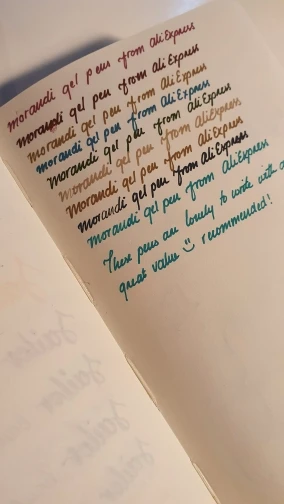 morandi gel pens from AliExpress
morandi gel pen from AliExpress
morandi gel pen from AliExpress
morandi gel pen from AliExpress
morandi gel pen from AliExpress
morandi gel pen from AliExpress
morandi gel pen from AliExpress
morandi gel pen from AliExpress
morandi gel pen from AliExpress
These pens are lovely to write with a
great value :) recommended!